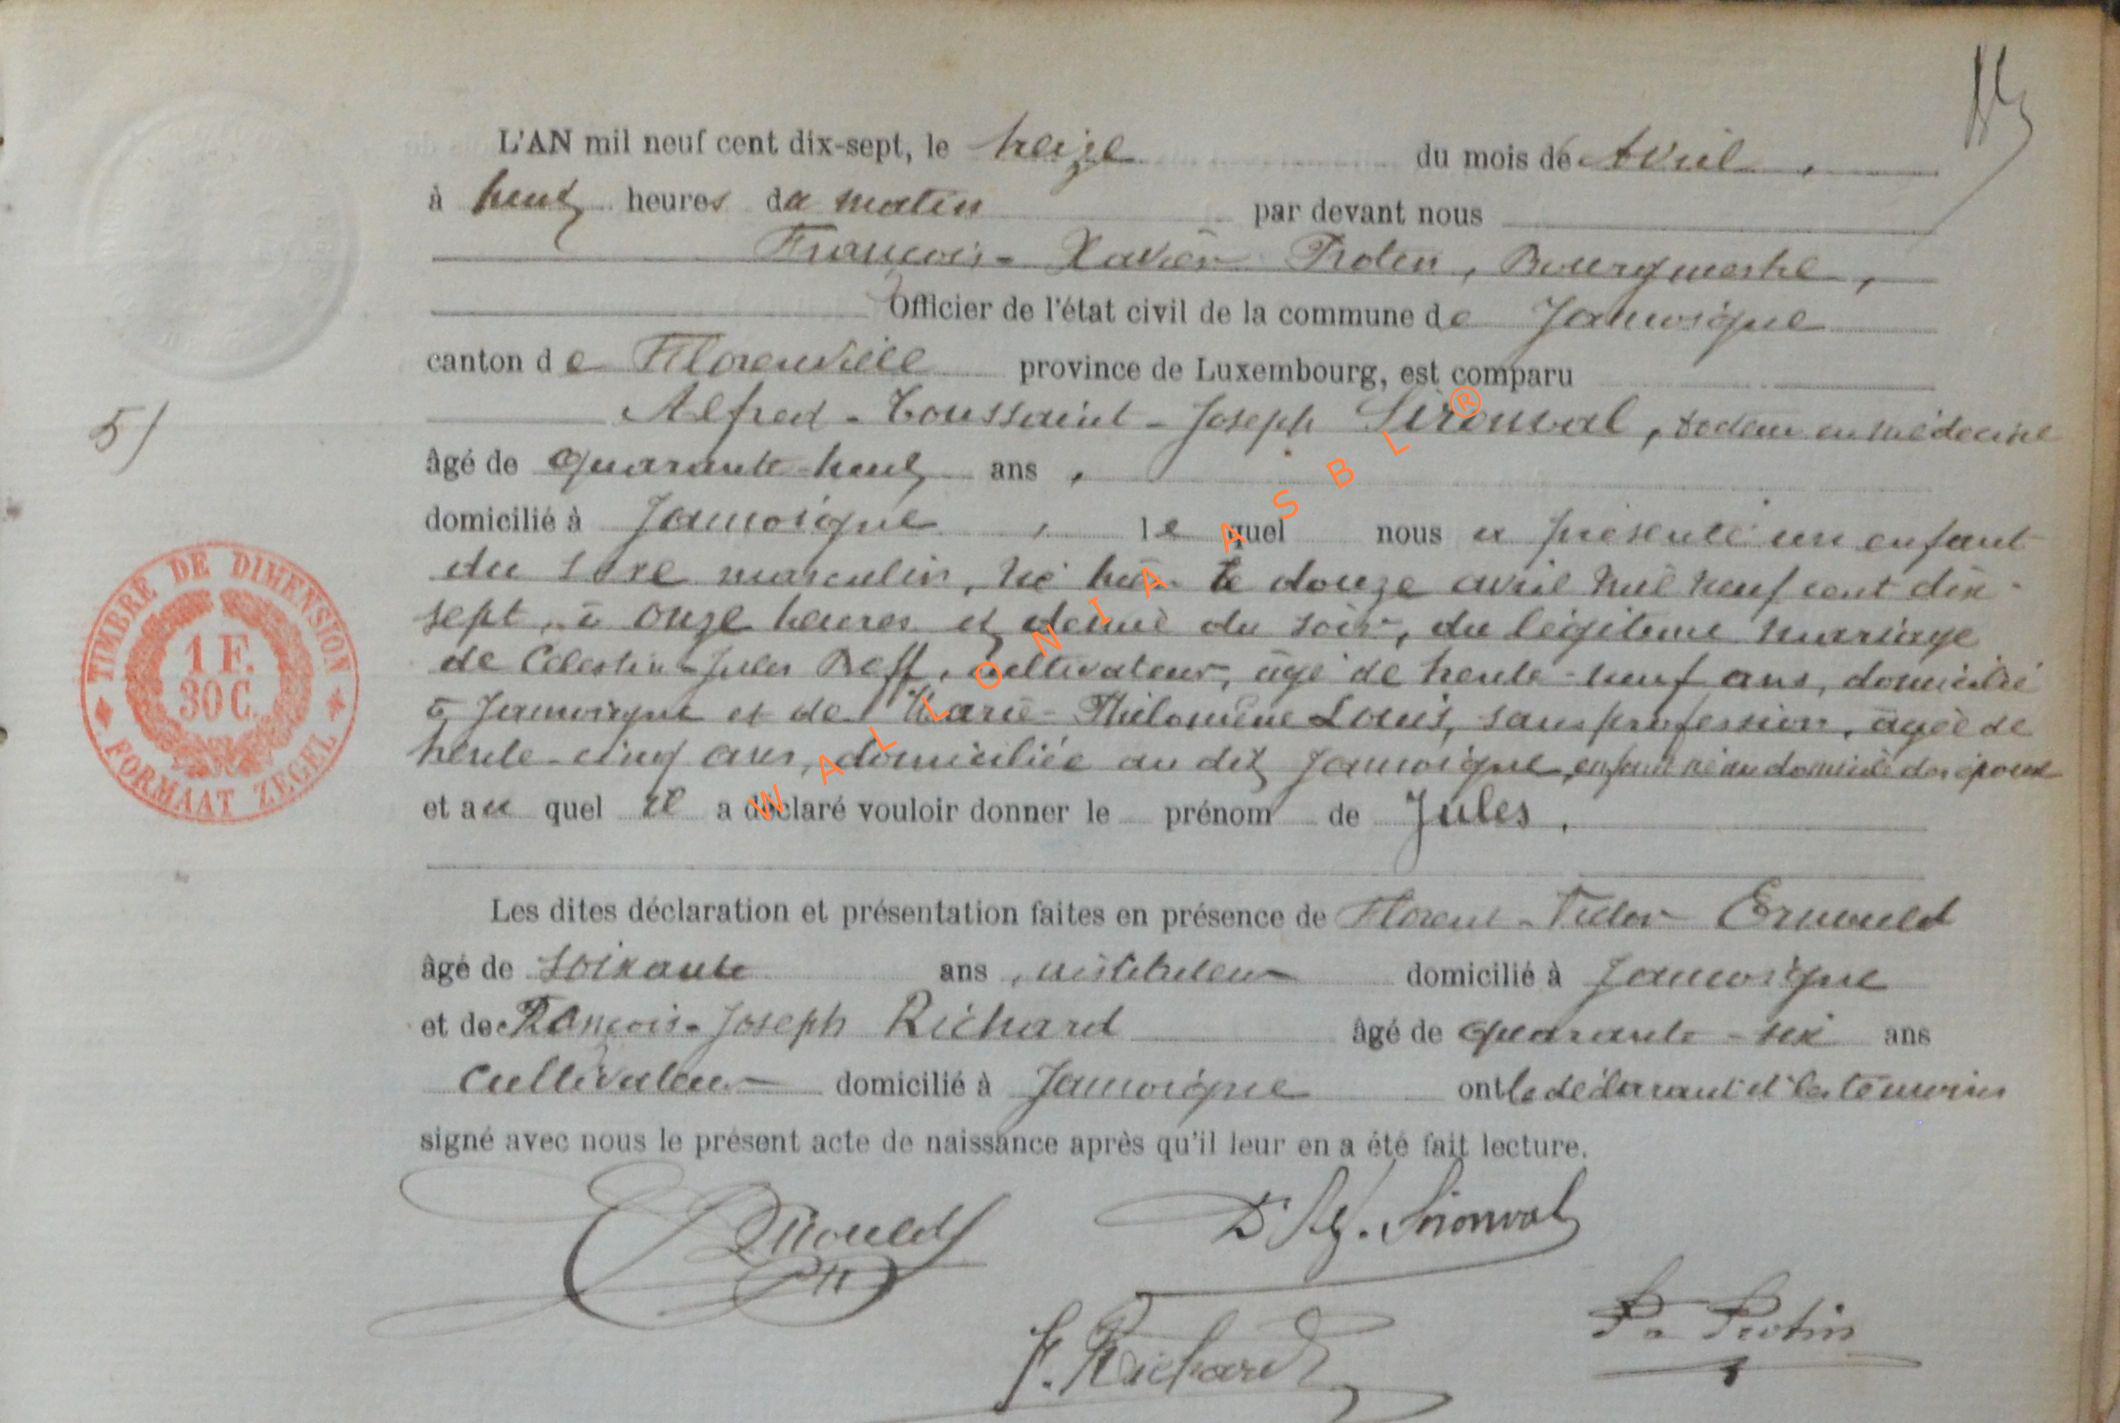 L'AN mil neuf cent dix-sept, le treize du mois de Avril,
à huit heures du matin par devant nous
François-Xavier Protin, Bourgmestre,
Officier de l'état civil de la commune de Jamoigne
canton de Florenville province de Luxembourg, est comparu
Alfred-Toussaint-Joseph Sironval, docteur en médecine
5/
âgé de quarante-huit ans,
domicilié à Jamoigne, lequel nous a présenté un enfant
du sexe masculin, né hier le douze avril mil neuf cent dix-
sept, à onze heures et demie du soir, du légitime mariage
de Célestin-Jules Deff, cultivateur, âgé de trente-neuf ans, domicilié
à Jamoigne et de Marie-Philomène Louis, sans profession, âgée de
trente-cinq ans, domiciliée au dit Jamoigne, enfant né au domicile des époux
et au quel il a déclaré vouloir donner le prénom de Jules.
TIMBRE DE DIMENSION
1 F.
30 C.
FORMAAT ZEGEL
Les dites déclaration et présentation faites en présence de Florent-Victor Ernould
âgé de soixante ans, instituteur domicilié à Jamoigne
et de François-Joseph Richard âgé de quarante-six ans
cultivateur domicilié à Jamoigne ont le déclarant et les témoins
signé avec nous le présent acte de naissance après qu'il leur en a été fait lecture.
Ernould
Dr Alf. Sironval
F. Richard
Fr Protin
WALLONIA ASBL ®